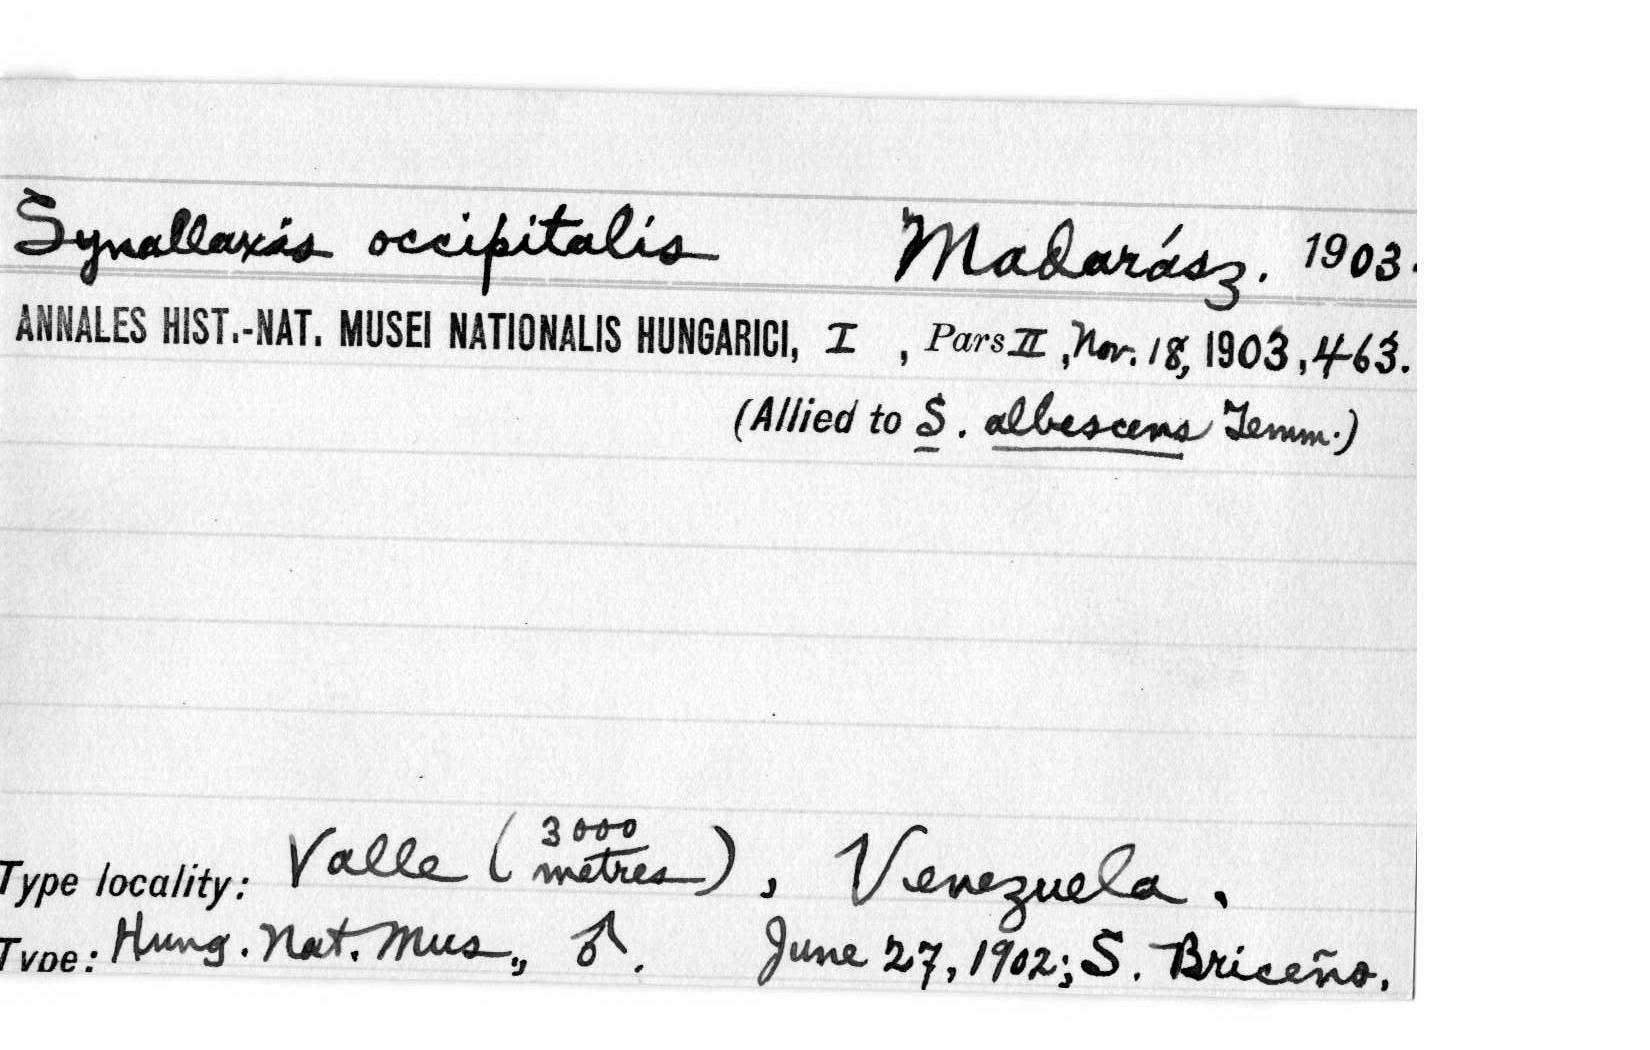 Synallaxis occipitalis Madarász. 1903.
ANNALES HIST.-NAT. MUSEI NATIONALIS HUNGARICI, I , Pars II, Nov. 18, 1903, 463.
(Allied to S. albescens Temm.)
Type locality: Valle (3000 metres), Venezuela.
Type: Hung. Nat. Mus., ♂. June 27, 1902; S. Briceño.